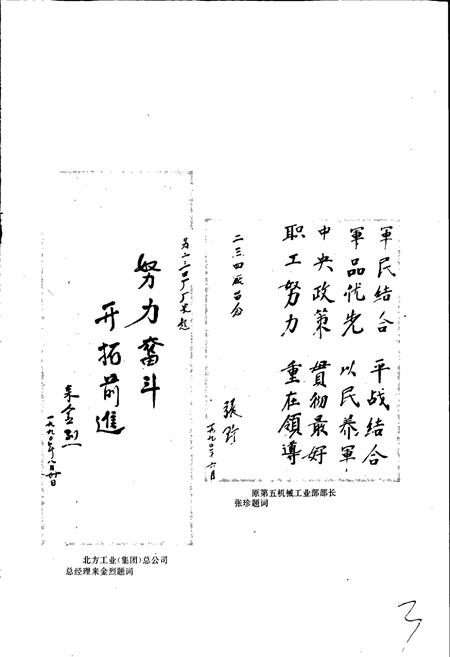 军民结合 平战结合
軍品优先 以民养軍
中央政策 贯彻最好
职工努力 重在領導
二三四厰留念
張珍
一九九〇年六月
原第五机械工业部部长
张珍题词
为二三〇厂厂史题
努力奮斗
开拓前進
来金烈
一九九〇年八月廿日
北方工业(集团)总公司
总经理来金烈题词
3